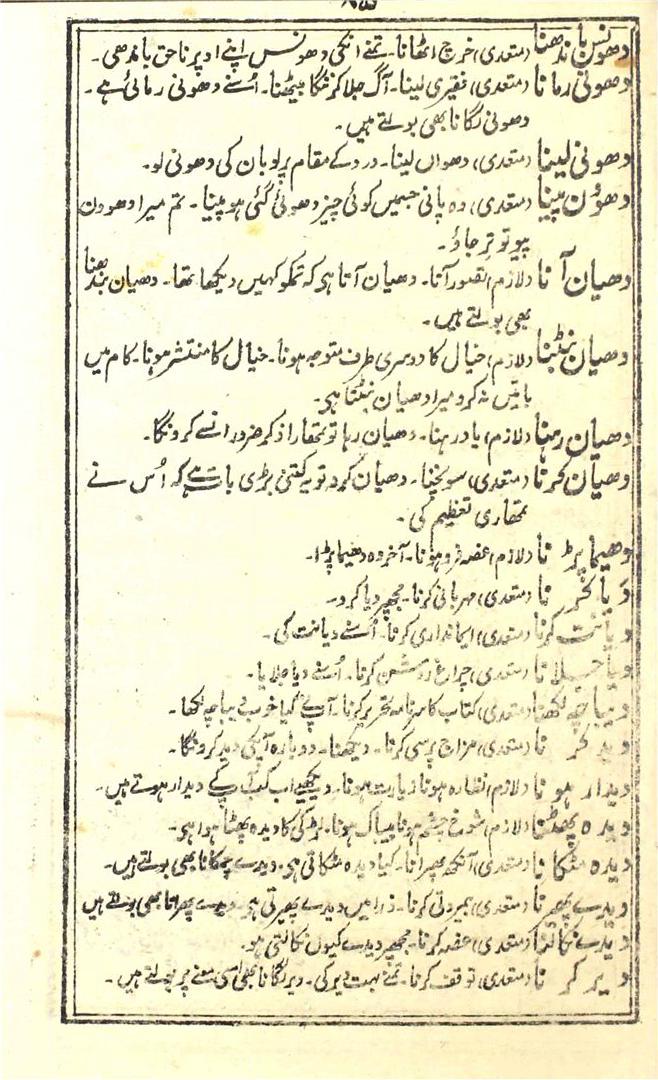 دھونس باندھنا (متعدی) خرچ اٹھانا۔ تمنے انکی دھونس اپنے اوپر ناحق باندھی۔
دھونی رمانا (متعدی) فقیری لینا۔ آگ جلا کر نگا بیٹھنا۔ اُسنے دھونی رمائی ہے۔
دھونی لگانا بھی بولتے ہیں۔
دھونی لینا (متعدی) دھواں لینا۔ درد کے مقام پر لوبان کی دھونی لو۔
دھوُن پینا (متعدی) وہ پانی جسمیں کوئی چیز دھوئی گئی ہو پینا۔ تم میرا دھوون
پیو تو تر جاؤ۔
دھیان آنا (لازم) تصور آنا۔ دھیان آتا ہی کہ تمکو کہیں دیکھا تھا۔ دھیان بندھنا
بھی بولتے ہیں۔
دھیان بٹنا (لازم) خیال کا دوسری طرف متوجہ ہونا۔ خیال کا منتشر ہونا۔ کام میں
باتیں نہ کرو میرا دھیان بٹتا ہی۔
دھیان رہنا (لازم) یاد رہنا۔ دھیان رہا تو تمھارا ذکر ضرور انسے کرونگا۔
دھیان کرنا (متعدی) سوچنا۔ دھیان کرو تو یہ کتنی بڑی بات ہے کہ اُس نے
تمھاری تعظیم کی۔
دھیما پڑنا (لازم) غصہ فرو ہونا۔ آخر وہ دھیما پڑا۔
دَیا کرنا (متعدی) مہربانی کرنا۔ مجھپر دیا کرو۔
دیانت کرنا (متعدی) ایمانداری کرنا۔ اُسنے دیانت کی۔
دیا جلانا (متعدی) چراغ روشن کرنا۔ اُسنے دیا جلایا۔
دیباچہ لکھنا (متعدی) کتاب کا سرنامہ تحریر کرنا۔ آپنے کیا خوب دیباچہ لکھا۔
دید کرنا (متعدی) مزاج پرسی کرنا۔ دیکھنا۔ دوبارہ آپکی دید کرونگا۔
دیدار ہونا (لازم) نظارہ ہونا زیارت ہونا۔ دیکھیے اب کب آپکے دیدار ہوتے ہیں۔
دیدہ پھٹنا (لازم) شوخ چشم ہونا بیباک ہونا۔ لڑکی کا دیدہ پھٹا ہوا ہی۔
دیدہ مٹکانا (متعدی) آنکھ پھرانا۔ کیا دیدہ مٹکاتی ہی۔ دیدے چمکانا بھی بولتے ہیں۔
دیدے پھرنا (متعدی) بیمروتی کرنا۔ ذرا میں دیدے پھیرتی ہی۔ دیدے پھرانا بھی بولتے ہیں
دیدے نکالنا (متعدی) غصہ کرنا۔ مجھپر دیدے کیوں نکالتی ہو۔
دیر کرنا (متعدی) توقف کرنا۔ تمنے بہت دیر کی۔ دیر لگانا بھی اسی معنے پر بولتے ہیں۔